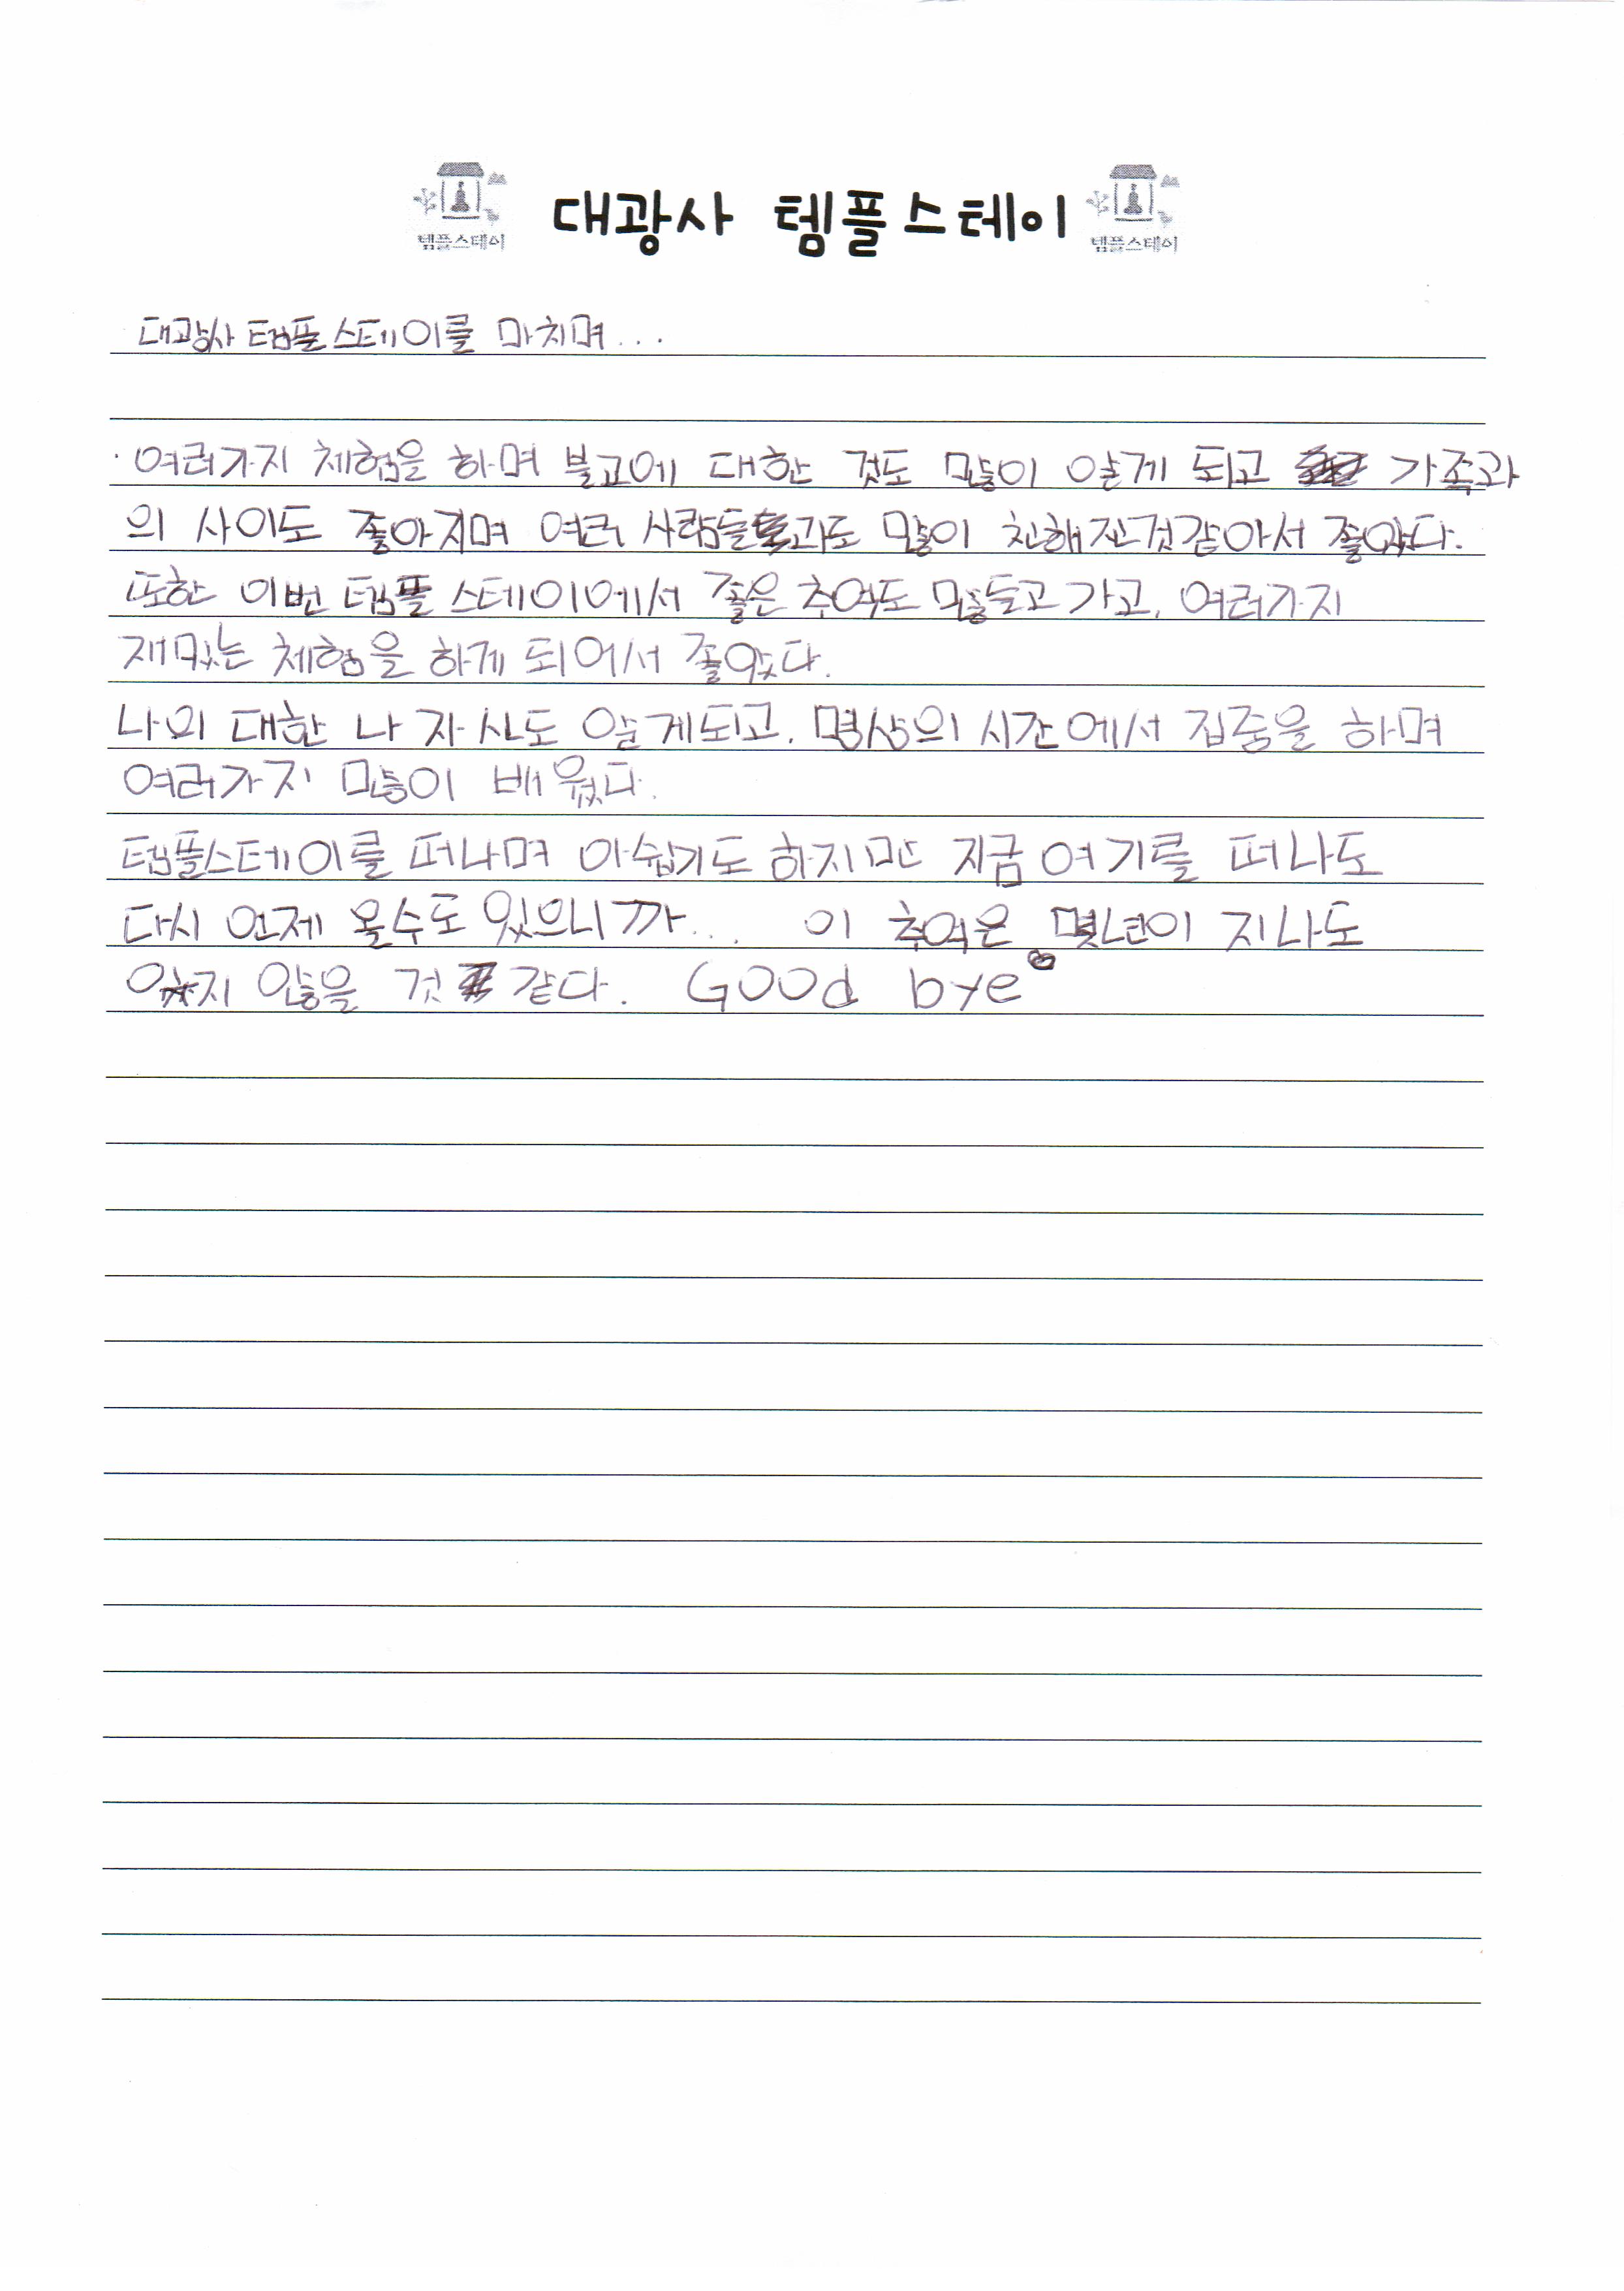 템플스테이 대광사 템플스테이 템플스테이
대광사 템플 스테이를 마치며...
· 여러가지 체험을 하며 불교에 대한 것도 많이 알게 되고 가족과
의 사이도 좋아지며 여러 사람들과도 많이 친해진것같아서 좋았다.
또한 이번 템플 스테이에서 좋은 추억도 많들고 가고, 여러가지
재밌는 체험을 하게 되어서 좋았다.
나의 대한 나 자신도 알게되고, 명상의 시간에서 집중을 하며
여러가지 많이 배웠다.
템플스테이를 떠나며 아쉽기도 하지만 지금 여기를 떠나도
다시 언제 올수도 있으니까... 이 추억은 몇년이 지나도
잊지 않을 것 같다. Good bye